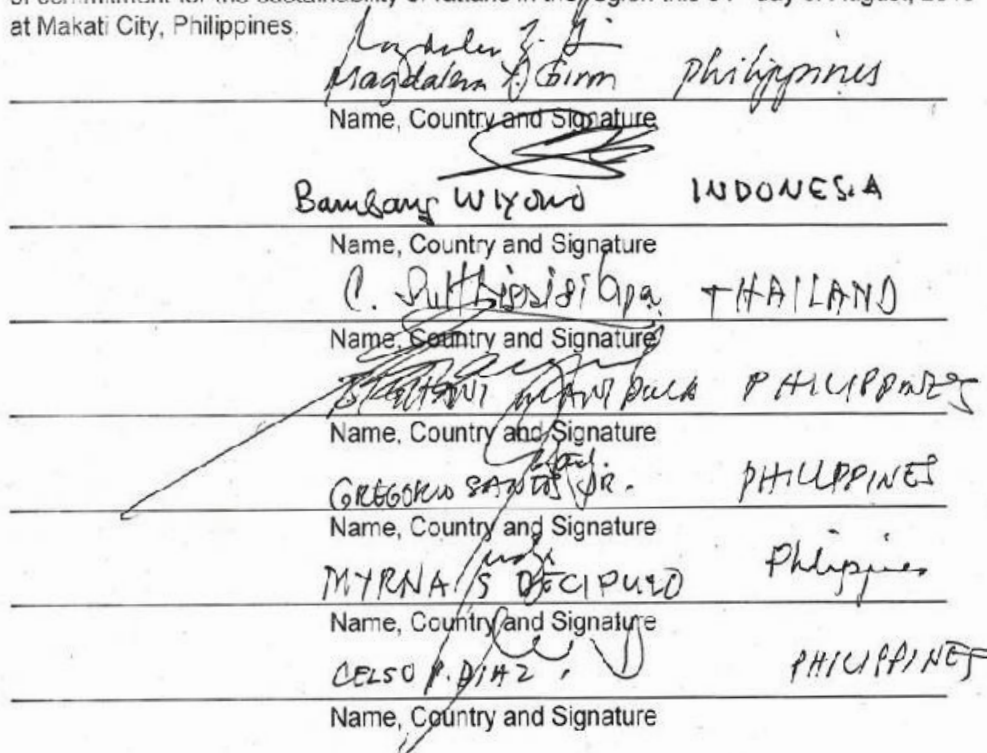 of commitment for the sustainability of rattans in the region this 31st day of August, 2018
at Makati City, Philippines.
Magdalena Y. Giron Philippines
Name, Country and Signature
Bambang WIYONO INDONESIA
Name, Country and Signature
C. THAILAND
Name, Country and Signature
PHILIPPINES
Name, Country and Signature
GREGORIO SANTOS JR. PHILIPPINES
Name, Country and Signature
MYRNA S DECIPULO Philippines
Name, Country and Signature
CELSO P. DIAZ PHILIPPINES
Name, Country and Signature